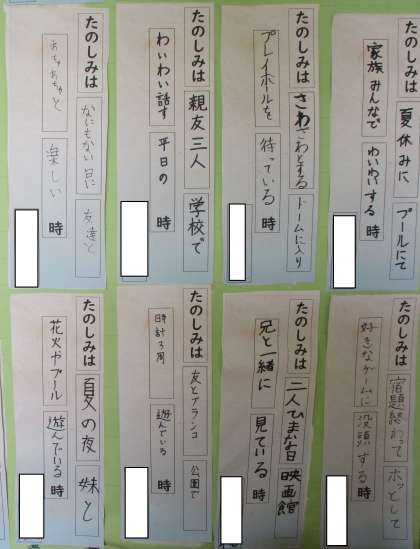 たのしみは 夏休みに プールにて
家族みんなで わいわいする 時
たのしみは さわざわとする ドームに入り
プレイボールを 待っている 時
たのしみは 親友三人 学校で
わいわい話す 平日の 時
たのしみは なにもない日に 友達と
楽しい 時
たのしみは 宿題終わって ホッとして
好きなゲームに 没頭する 時
たのしみは 二人ひまな日 映画館
兄と一緒に 見ている 時
たのしみは 友とブランコ 公園で
時計3周 遊んでいる 時
たのしみは 夏の夜 妹と
花火やプール 遊んでいる 時